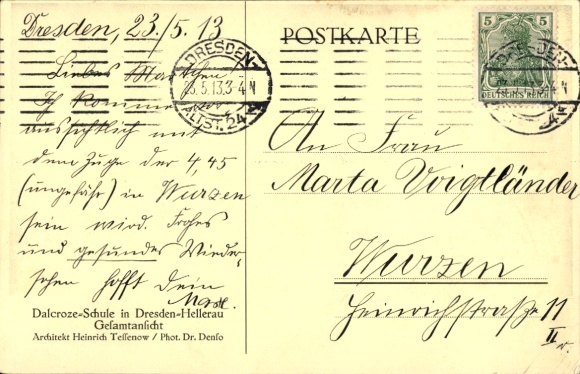 Dresden, 23./5. 13
Liebes Martchen
Ich komme vor
aussichtlich mit
dem Zuge der 4,45
(ungefähr) in Wurzen
sein wird. Frohes
und gesundes Wieder-
sehen hofft Dein
Dalcroze-Schule in Dresden-Hellerau
Gesamtansicht
Architekt Heinrich Tessenow / Phot. Dr. Denso
POSTKARTE
DRESDEN-
23.5.13.3-4N
ALTST. 24
5 5
DEUTSCHES REICH
An Frau
Marta Voigtländer
Wurzen
Heinrichstraße 11
II r.